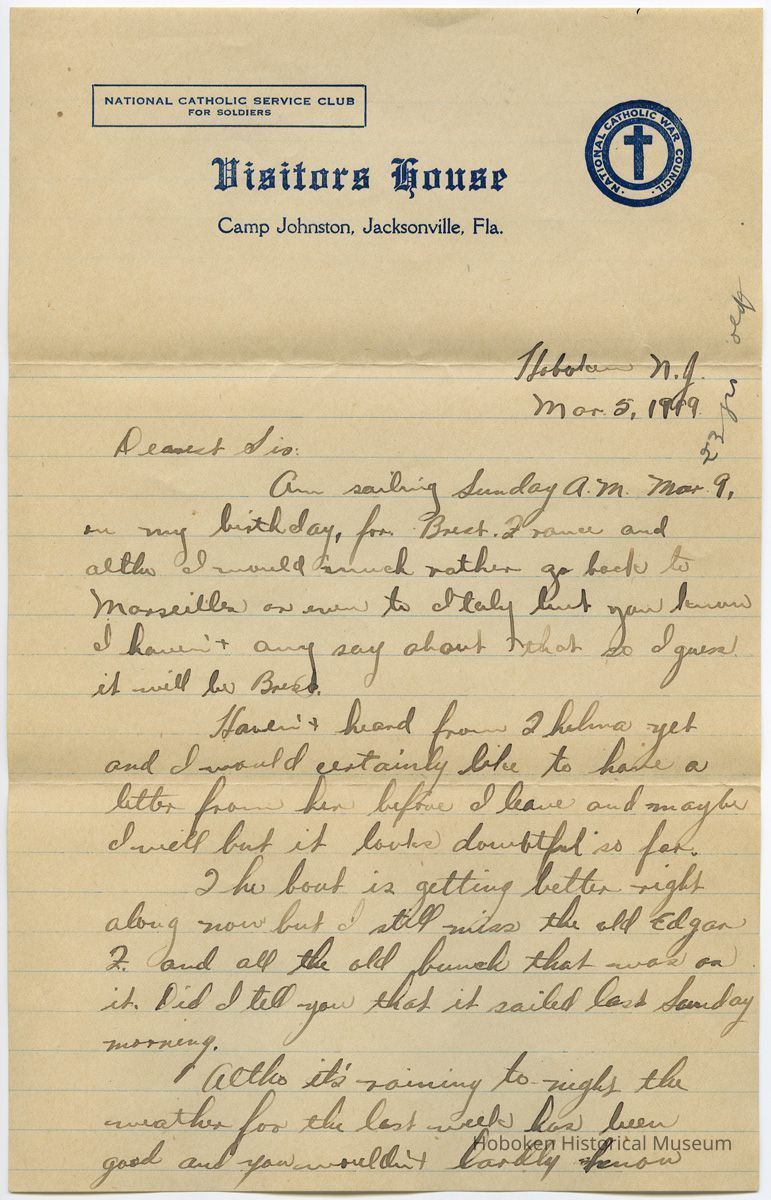 NATIONAL CATHOLIC SERVICE CLUB
FOR SOLDIERS
NATIONAL CATHOLIC WAR COUNCIL
Visitors House
Camp Johnston, Jacksonville, Fla.
23 yrs old
Hoboken N.J.
Mar. 5, 1919
Dearest Sis:
Am sailing Sunday A.M. Mar. 9,
on my birthday, for Brest. France and
altho I would much rather go back to
Marseilles or even to Italy but you know
I haven't any say about that so I guess
it will be Brest.
Haven't heard from Thelma yet
and I would certainly like to have a
letter from her before I leave and maybe
I will but it looks doubtful so far.
The boat is getting better right
along now but I still miss the old Edgar
F. and all the old bunch that was on
it. Did I tell you that it sailed last Sunday
morning.
Altho it's raining to-night the
weather for the last week has been
good and you wouldn't hardly know
Hoboken Historical Museum